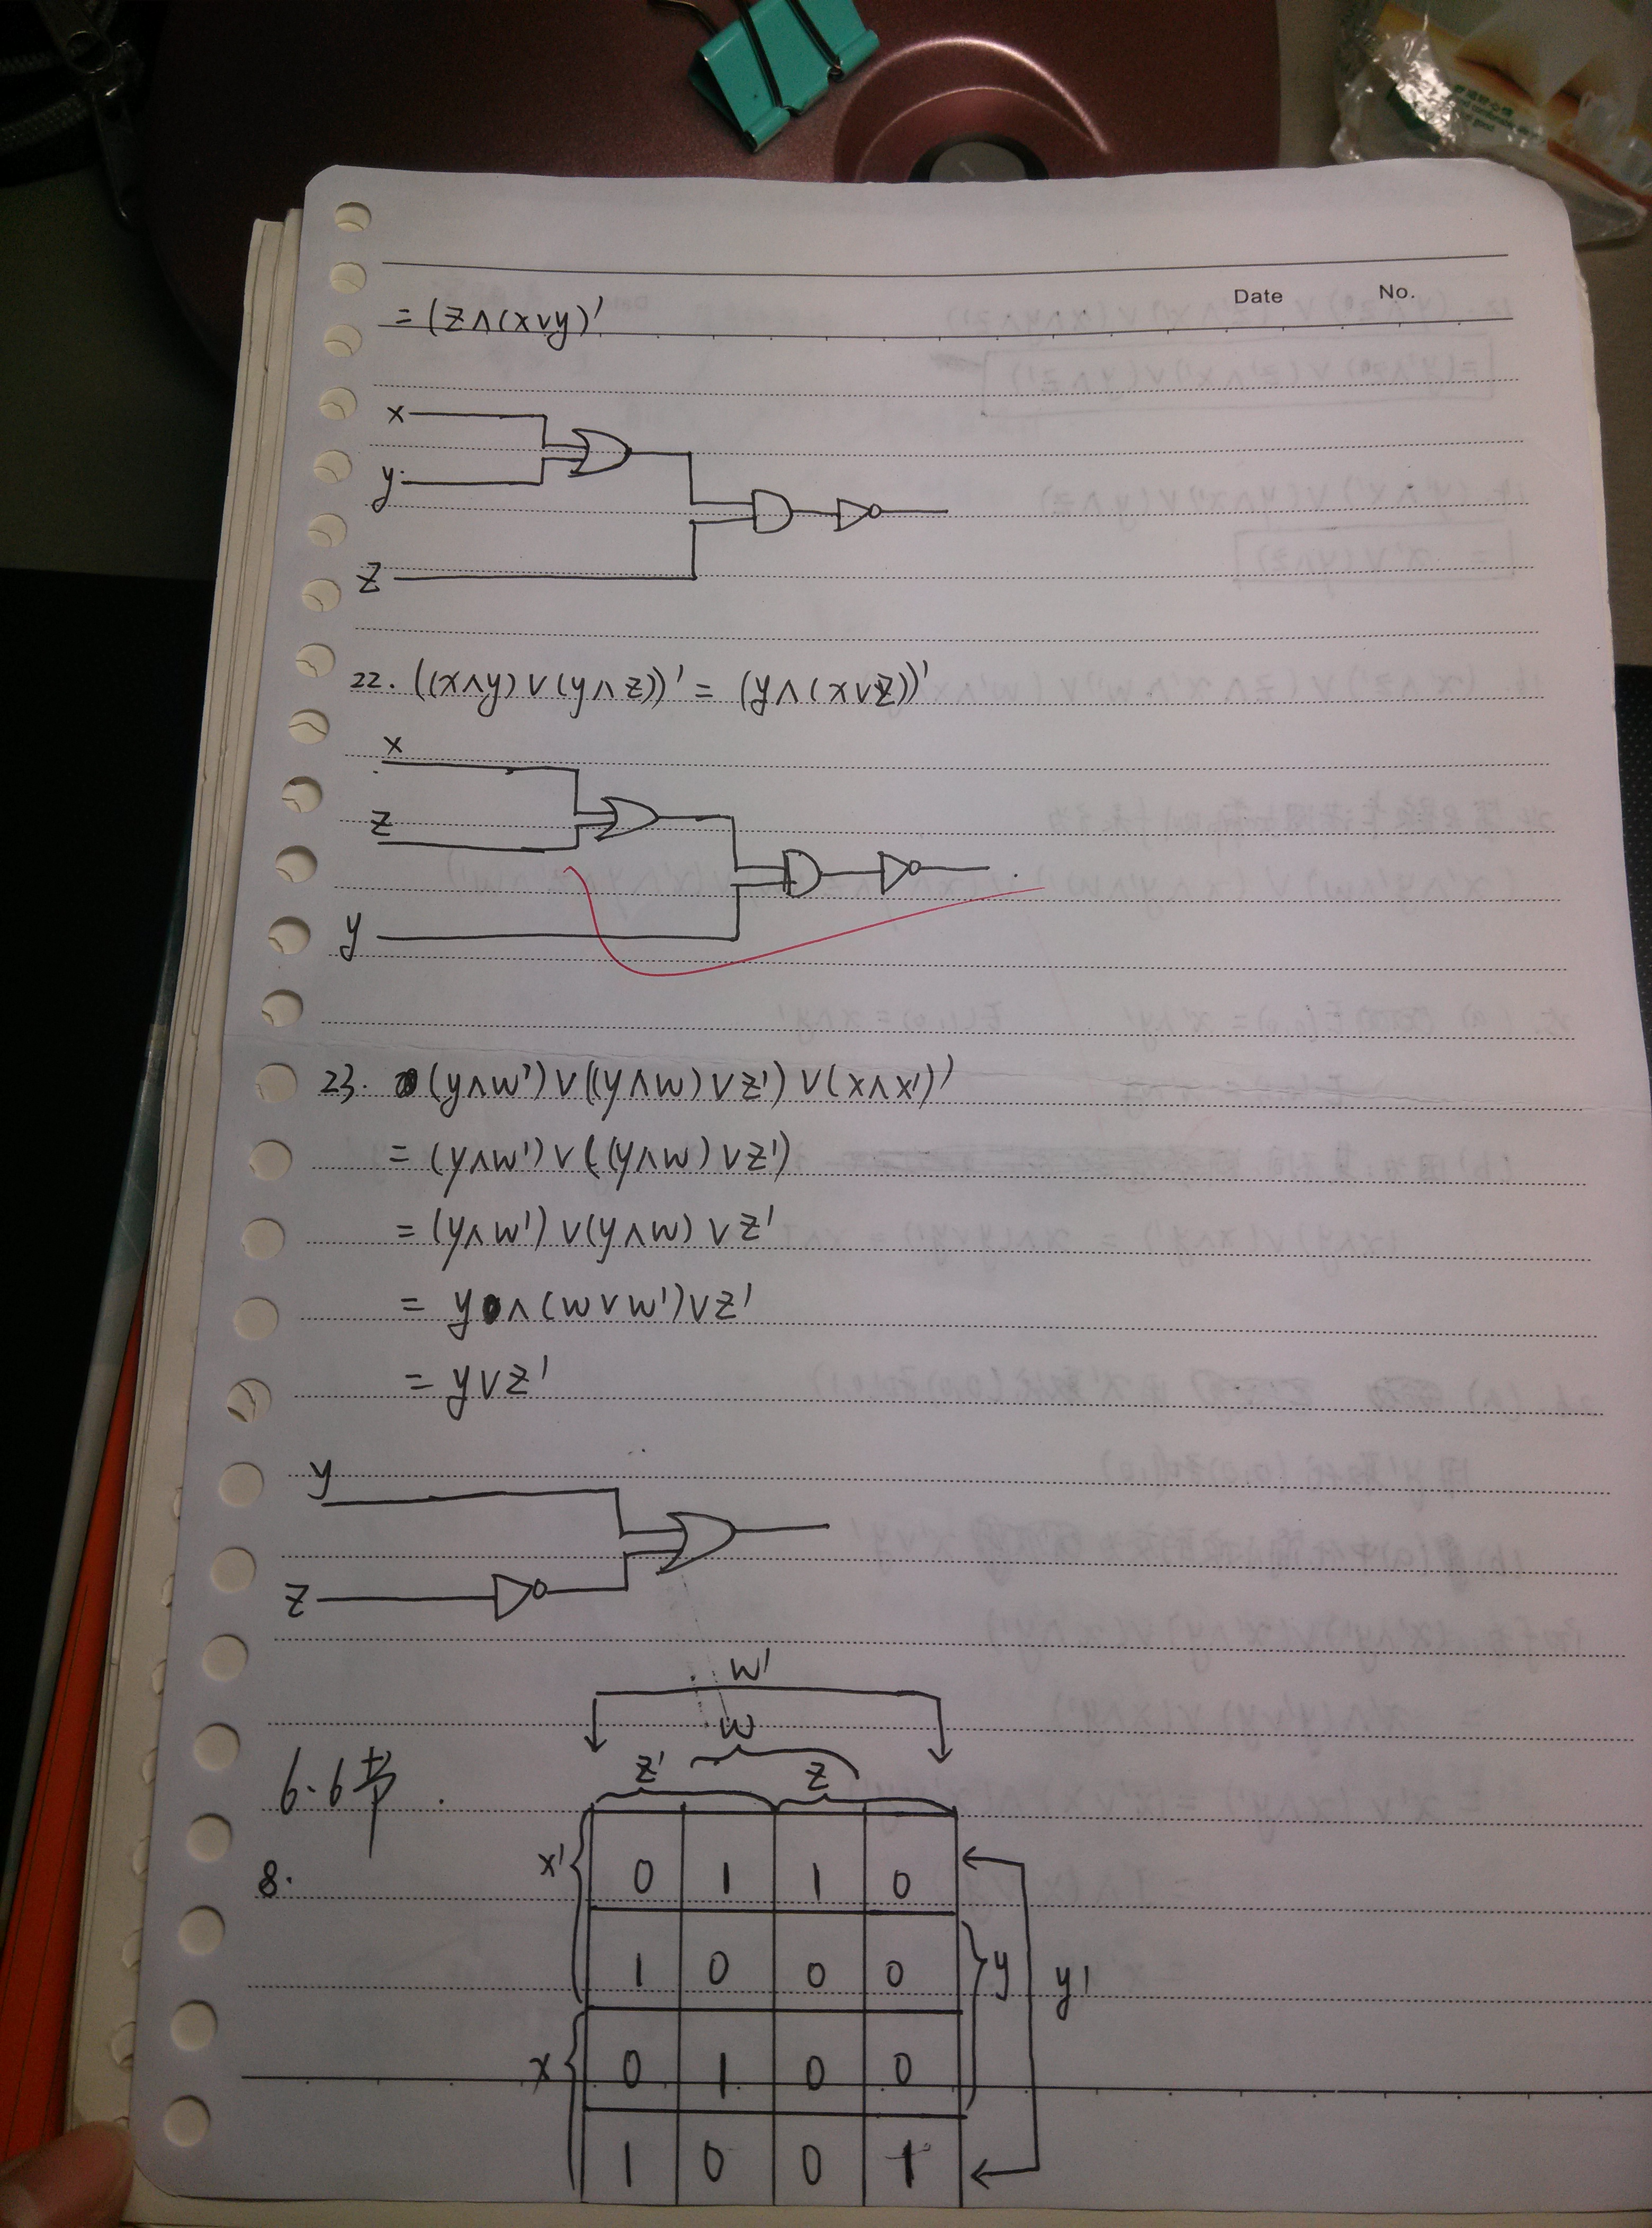 Date No.
= (z∧(x∨y)'
x
y
z
22. ((x∧y)∨(y∧z))' = (y∧(x∨z))'
x
z
y
23. (y∧w')∨((y∧w)∨z')∨(x∧x')'
= (y∧w')∨((y∧w)∨z')
= (y∧w')∨(y∧w)∨z'
= y∧(w∨w')∨z'
= y∨z'
y
z
w'
w
6.6节.
z' z
8.
x' 0 1 1 0
1 0 0 0 y y'
x 0 1 0 0
1 0 0 1